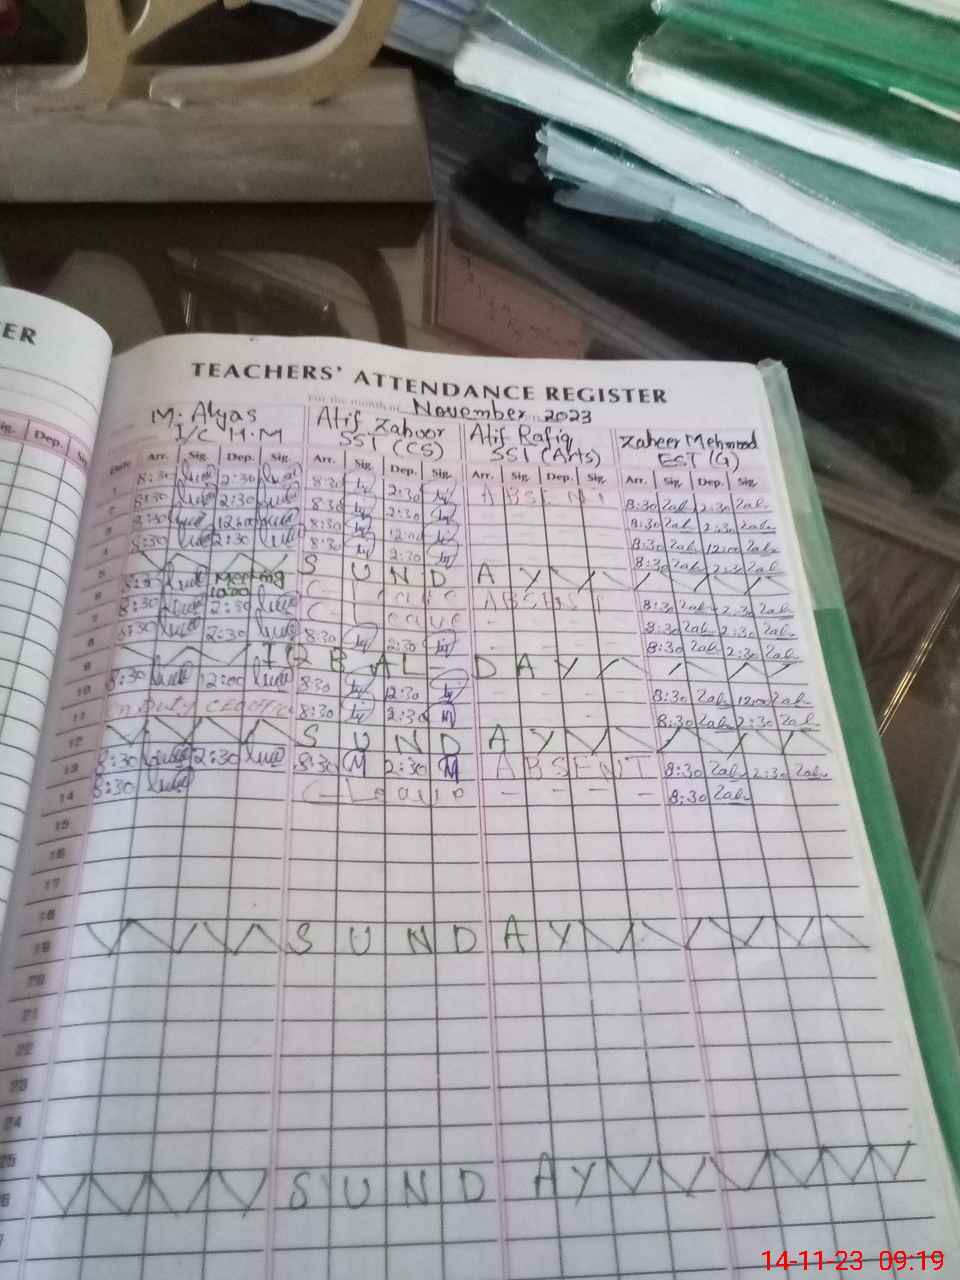 TER
Sig. Dep.
TEACHERS' ATTENDANCE REGISTER
For the month of November 2023
M. Alyas Atif Zahoor Atif Rafiq Zaheer Mehmood
I/C H.M SST (CS) SST (Arts) EST (G)
Date Arr. Sig. Dep. Sig. Arr. Sig. Dep. Sig. Arr. Sig. Dep. Sig. Arr. Sig. Dep. Sig.
1 8:30 2:30 8:30 2:30 ABSENT 8:30 Zah 2:30 Zah
2 8:30 2:30 8:30 2:30 - - - - 8:30 Zah 2:30 Zah
3 8:30 12:00 8:30 12:00 - - - - 8:30 Zah 12:00 Zah
4 8:30 2:30 8:30 2:30 - - - - 8:30 Zah 2:30 Zah
5 SUNDAY
6 8:30 Meeting 10:00 C-Leave ABSENT 8:30 Zah 2:30 Zah
7 8:30 2:30 C-Leave - - - - 8:30 Zah 2:30 Zah
8 8:30 2:30 8:30 2:30 - - - - 8:30 Zah 2:30 Zah
9 IQBAL DAY
10 8:30 12:00 8:30 12:30 - - - - 8:30 Zah 12:00 Zah
11 On Duty CEO Office 8:30 2:30 M - - - - 8:30 Zah 2:30 Zah
12 SUNDAY
13 8:30 2:30 8:30 M 2:30 M ABSENT 8:30 Zah 2:30 Zah
14 8:30 C-Leave - - - - 8:30 Zah
15
16
17
18
19 SUNDAY
20
21
22
23
24
25
26 SUNDAY
14-11-23 09:19